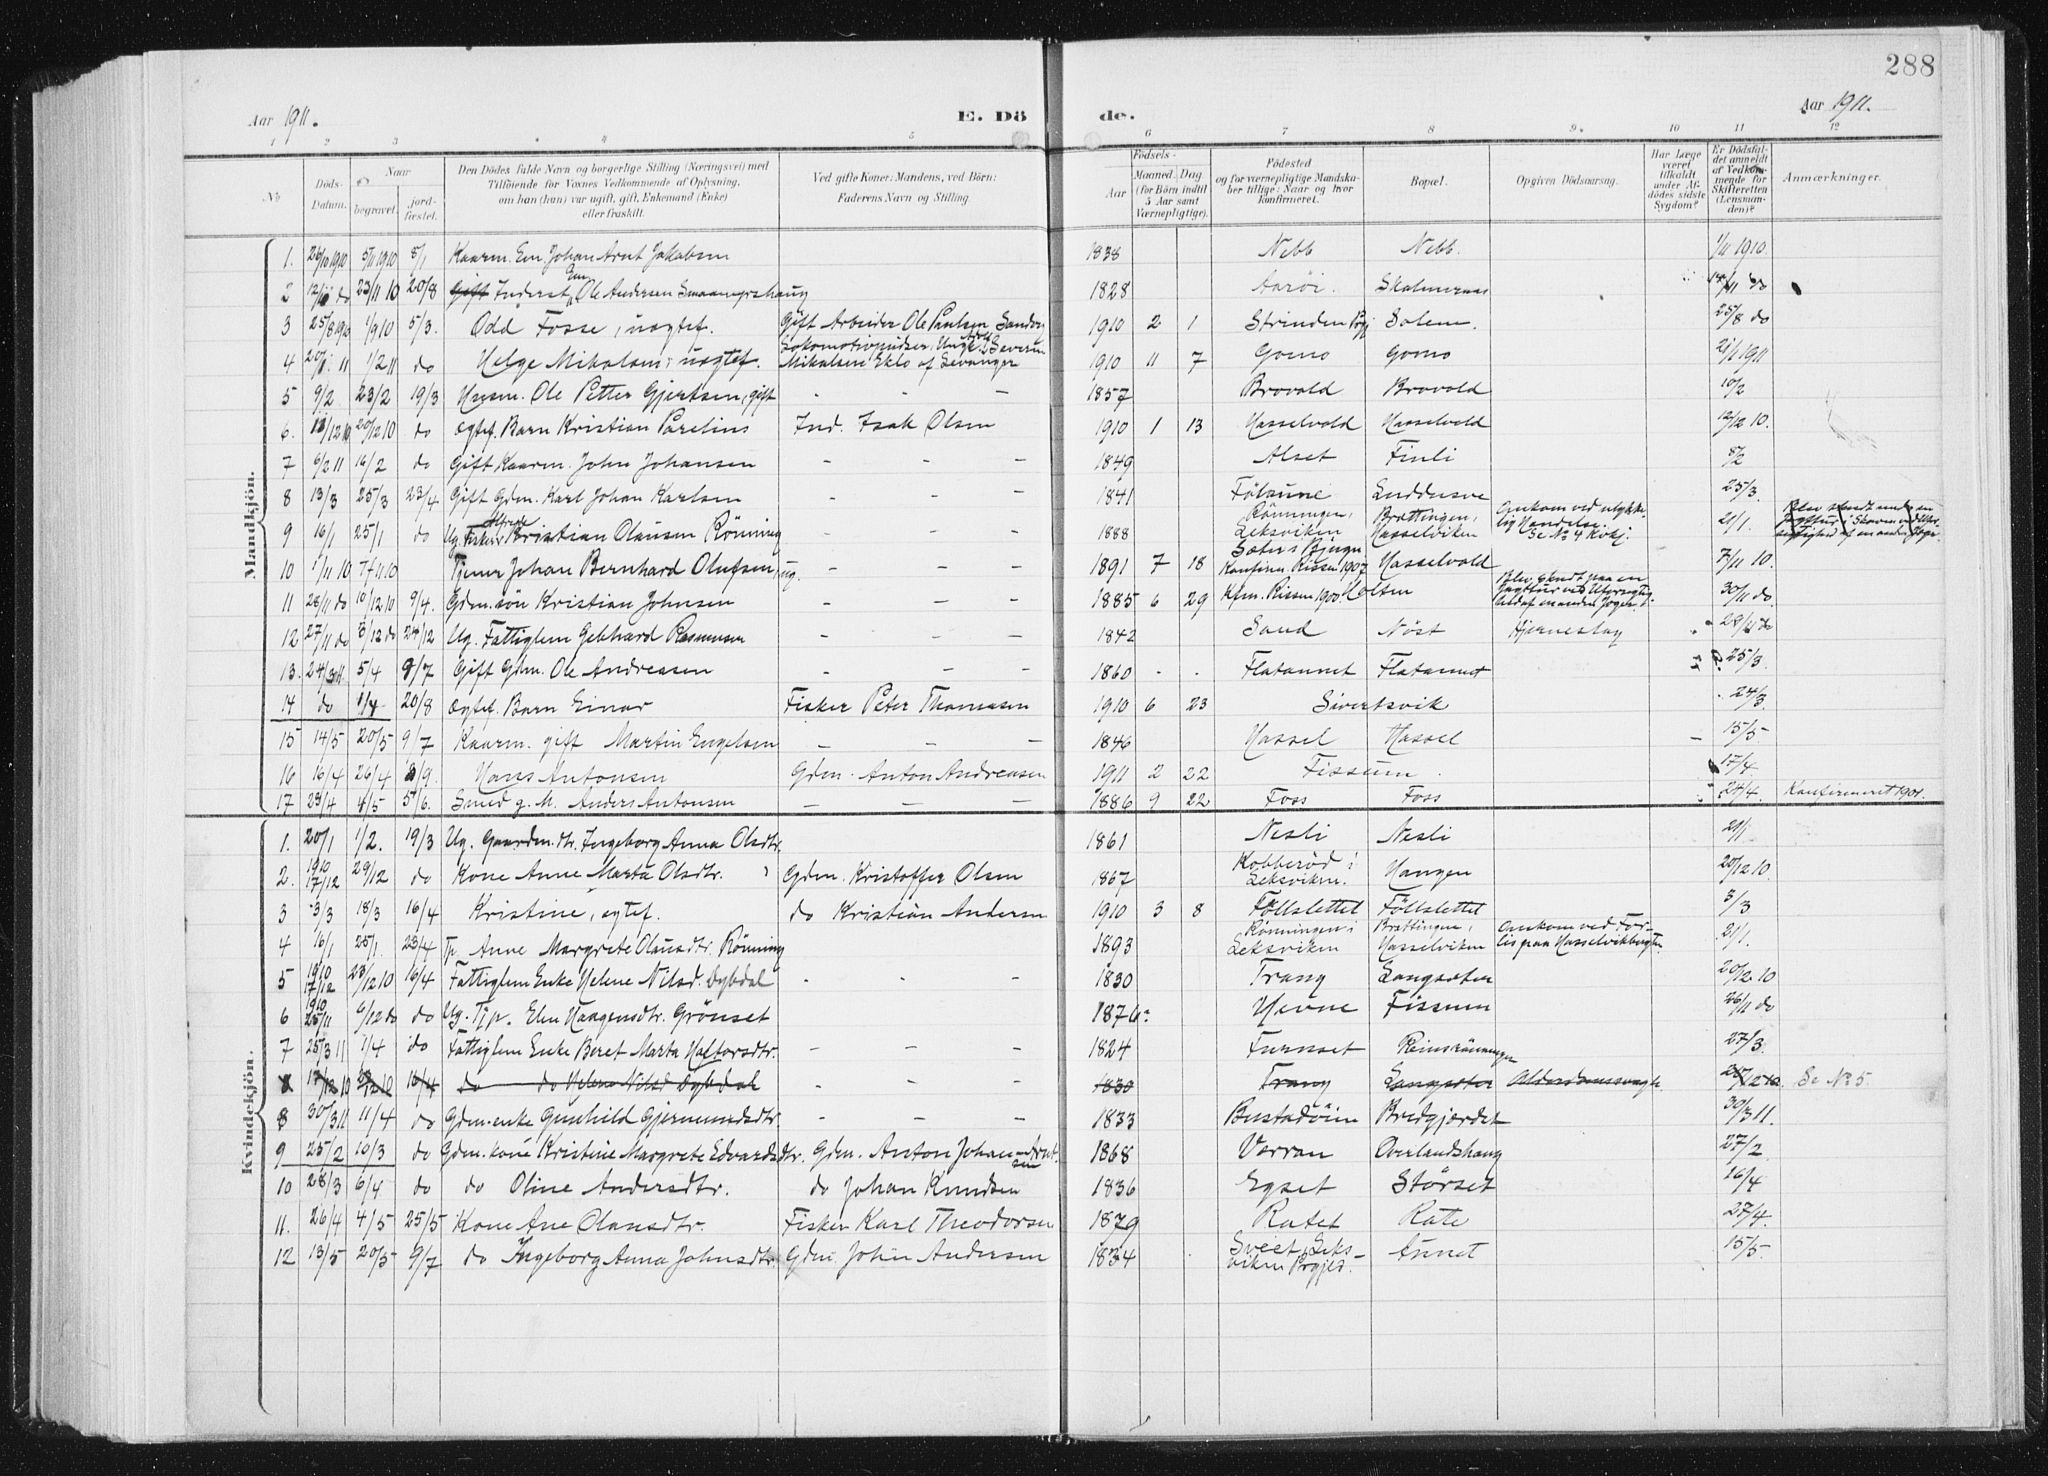 288
Aar 1911.
E. Dö
de.
Aar 1911.
1 2 3 4 5 6 7 8 9 10 11 12
No
Döds-Datum.
Naar
begravet.
jordfæstet.
Den Dödes fulde Navn og borgerlige Stilling (Næringsvei) med
Tilföiende for Voxnes Vedkommende af Oplysning,
om han (hun) var ugift, gift, Enkemand (Enke)
eller fraskilt.
Ved gifte Koner: Mandens, ved Börn:
Faderens Navn og Stilling.
Födsels-
Aar
Maaned. Dag
(for Börn indtil
5 Aar samt
Værnepligtige).
Födested
og for værnepligtige Mandska-
ber tillige: Naar og hvor
konfirmeret.
Bopæl.
Opgiven Dödsaarsag.
Har Læge
været
tilkaldt
under Af-
dödes sidste
Sygdom?
Er Dödsfal-
det anmeldt
af Vedkom-
mende for
Skifteretten
(Lensman-
den)?
Anmærkninger.
Mandkjön.
1. 26/10 1910 5/11 1910 8/1 Kaarm. Em. Johan Arnt Jakobsen 1838 Nebb Nebb. 1/11 1910.
2 do 23/11 10 20/8 Gift Inderst Em Ole Andersen 1828 Aarøi. do
3 25/8 1910 1/9 10 5/3. Odd Fosse, uægtef. Gift Arbeider Ole Paulsen Sandø 1910 2 1 Strinden Solem. 25/8 do
4 20/1 11 1/2 11 do Helge Mikalsen, uægtef. Severin Mikalsen Eklo af Levanger 1910 11 7 Gomo Gomo 21/1 1911
5 9/2 23/2 19/3 Husm. Ole Petter Gjertsen, gift - - - 1857 Brovold Brovold 10/2
6. 12/12 10 20/12 10 do Ægtef. Barn Kristian Parelius Ind. Isak Olsen 1910 1 13 Hasselvold Hasselvold 12/12 10.
7 6/2 11 16/2 do Gift Kaarm. John Johansen - - - 1849 Alset Finli 8/2
8 13/3 25/3 23/4 Gift Gdm. Karl Johan Karlsen - - - 1841 Fölaune 25/3.
9 16/1 25/1 do Ug. Fisker Alfred Kristian Olausen Rönning - - - 1888 Rönningen, Leksviken Brattingen, Hasselviken Omkom ved ulykkelig Hændelse. Se No 4 Kvkj. 21/1.
10 1/11 10 7/11 10 Tjener Johan Bernhard Olufsen, ug. - - - 1891 7 18 Sæter i Bjugn Konfirm. Rissen 1907 Hasselvold 7/11 10.
11 28/11 do 10/12 10 9/4. Gdm. sön Kristian Johnsen - - - 1885 6 29 Kfm. Rissen 1900 Holten Blev skudt paa en Jagttur ved Uforsigtighed af en anden Jæger. 30/11 do.
12 27/11 do 8/12 do 24/12 Ug. Fattiglem Gebhard Rasmusen - - - 1842 Sand Nöst Hjerneslag 28/11 do
13. 24/3 11. 5/4 9/7 Gift Gdm. Ole Andreasen - - - 1860 - - Flatannet Flatannet 25/3.
14 do 1/4 20/8 Ægtef. Barn Einar Fisker Peter Thomasen 1910 6 23 Sivertsvik 24/3.
15 14/5 20/5 9/7 Kaarm. gift Martin Engelsen - - - 1846 Hassel Hassel - 15/5
16 16/4 26/4 Hans Antonsen Gdm. Anton Andreasen 1911 2 22 Fissum. 17/4
17 23/4 4/5 5/6. Smed g. M. Anders Antonsen - - - 1886 9 22 Foss Foss 24/4. Konfirmeret 1901.
Kvindekjön.
1. 20/1 1/2. 19/3 Ug. Gaardm. dtr. Ingeborg Anna Olsdtr. 1861 Nesli Nesli 21/1
2. 1910 17/12 29/12 do Kone Anne Marta Olsdtr. Gdm. Kristoffer Olsen 1867 Kobberöd i Leksviken. Hangen 20/12 10.
3 3/3 18/3 16/4 Kristine, ægtef. do Kristian Andersen 1910 3 8 Föllslettet Föllslettet 3/3
4 16/1 25/1. 23/4 Tp. Anne Margrete Olausdtr. Rönning 1893 Rönningen i Leksviken Brattingen, Hasselviken Omkom ved Forlis paa Hasselvikbugten. 21/1.
5 1910 17/12 23/12 10 16/4 Fattiglem Enke Helene Nilsd. Dybdal - - - 1830 Trang Langsæter 20/12 10
6 1910 25/11 9/12 do do Ug. Tjp. Elen Haagensdtr. Grönset 1876. Hevne Fissum 26/11 do
7 25/3 11 1/4 do Fattiglem Enke Beret Marta Haltorsdtr. - - - 1824 Furuset Reinsrönningen 27/3.
8 17/12 10 16/4 do do Helene Nilsd Dybdal - - - 1830 Trang Langsæter Alderdomssvaghed Se No 5.
8 30/3 11 11/4 do Gdm. enke Gunhild Gjermundsdtr. - - - 1833 Bustadvien Bredgjerdet 30/3 11.
9 25/2 10/3 do Gdm. kone Kristine Margrete Edvardsdtr. Gdm. Anton Johan Arntsen 1868 Verran Overlandshaug 27/2
10 28/3 6/4 do do Oline Andersdtr. do Johan Knudsen 1836 Egset Störset 16/4
11. 26/4 4/5 25/5 Kone Ane Olausdtr. Fisker Karl Theodorsen 1879 Ratet Rate 27/4.
12 13/5 20/5 9/7 do Ingeborg Anna Johnsdtr. Gdm. John Andersen 1834 Leksviken Prgjld. Aunet 15/5.